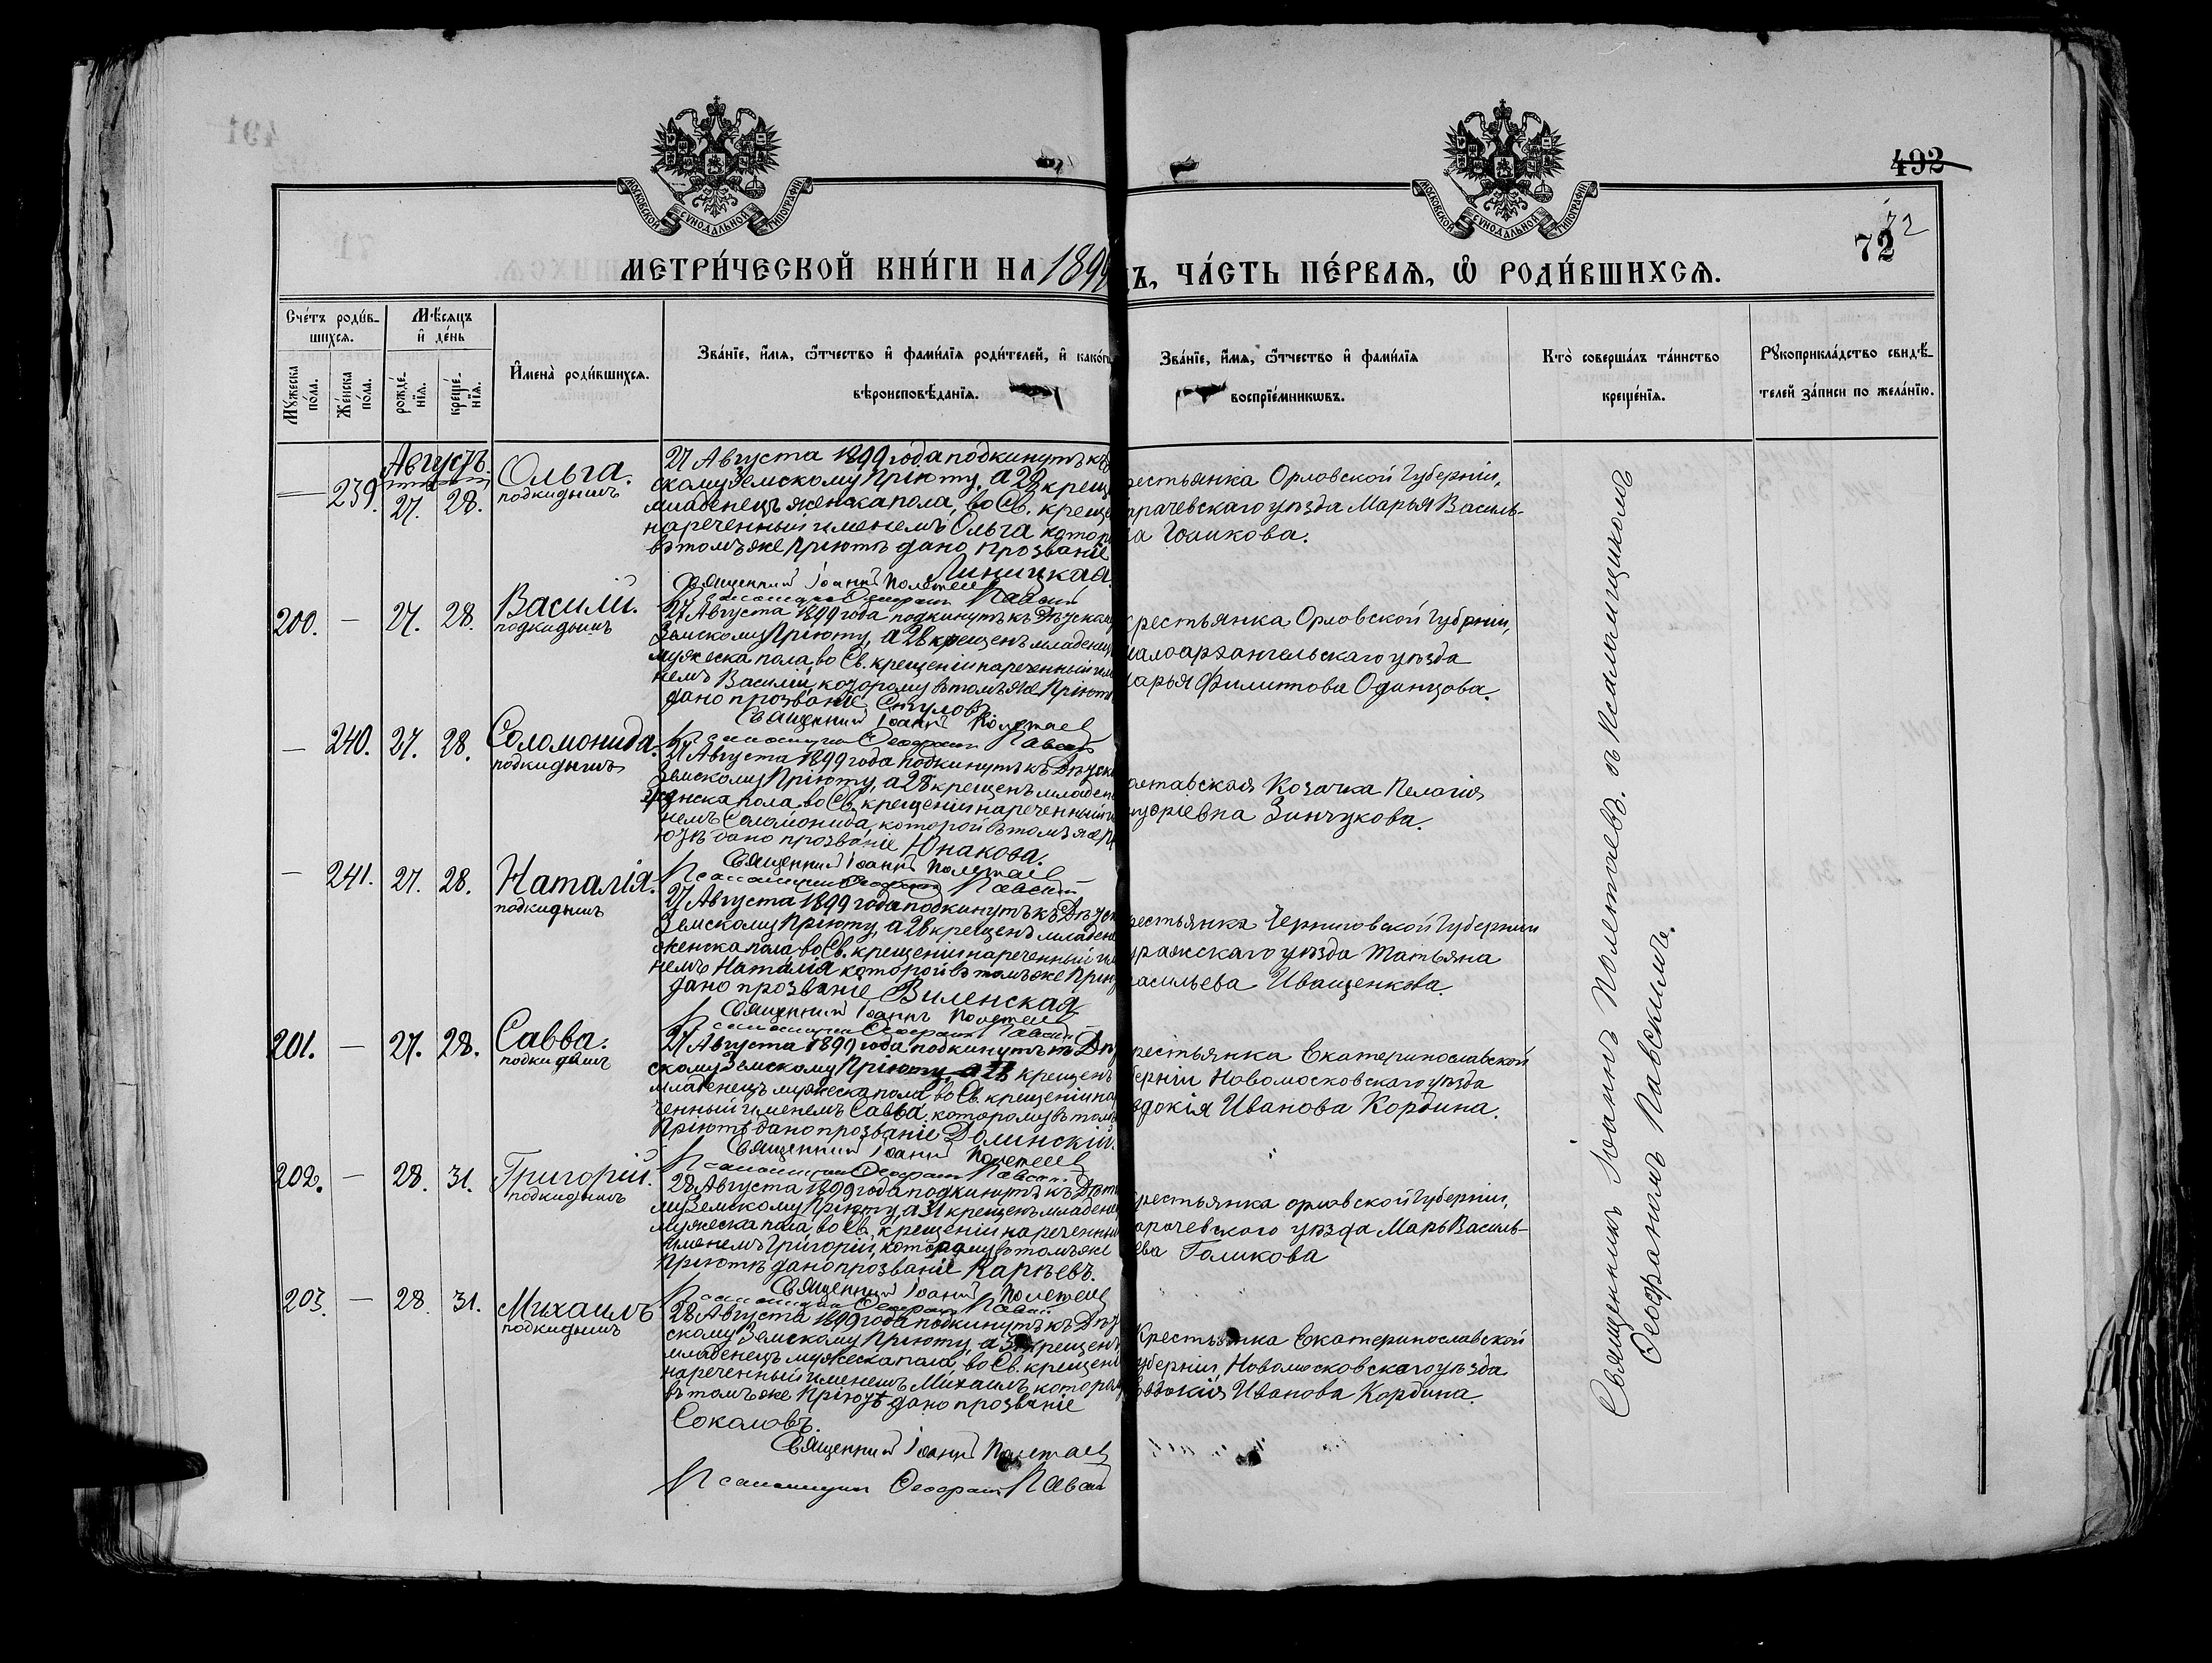 492
72
72
МОСКОВСКОЙ СѴНОДАЛЬНОЙ ТИПОГРАФІИ
МОСКОВСКОЙ СѴНОДАЛЬНОЙ ТИПОГРАФІИ
МЕТРИ́ЧЕСКОЙ КНИ́ГИ НА 1899
Ъ, ЧА́СТЬ ПЕ́РВАѦ, Ѡ РОДИ́ВШИХСѦ.
Сче́тъ роди́в-
шихсѧ.
Мꙋ́жеска по́ла.
Же́нска по́ла.
Мѣ́сяцъ
и҆ де́нь
рожде́-нїѧ.
креще́-нїѧ.
И҆мена̀ роди́вшихсѧ.
Зва́нїе, и҆́мѧ, ѻ҆́тчество и҆ фами́лїѧ роди́телей, и҆ како́гѡ
вѣроисповѣ́данїѧ.
Зва́нїе, и҆́мѧ, ѻ҆́тчество и҆ фами́лїѧ
воспрїе́мникѡвъ.
Кто̀ соверша́лъ та́инство
креще́нїѧ.
Рꙋкоприкла́дство свидѣ́-
телей за́писи по жела́нїю.
Августъ.
— 239. 27. 28. Ольга.
подкидышъ
27 Августа 1899 года подкинутъ къ
скому Земскому Пріюту, а 28 креще
младенецъ женска пола, во Св. креще
нареченный именемъ Ольга котор
въ томъ же Пріютѣ дано прозваніе
Линицкая.
Священник Іоаннъ Полетаев
Псаломщикъ Ѳеофанъ Павский
рестьянка Орловской Губерніи,
рачевскаго уѣзда Марья Василь-
ва Голикова.
200. — 27. 28. Василій.
подкидышъ
27 Августа 1899 года подкинутъ къ Дѣтском
Земскому Пріюту, а 28 крещенъ младенец
мужеска пола, во Св. крещеніи нареченный име
немъ Василій, которому въ томъ же Пріют
дано прозваніе Стуловъ
Священник Іоаннъ Полетаев
Псаломщикъ Ѳеофанъ Павский
рестьянка Орловской Губерніи,
малоархангельскаго уѣзда
арья Филипова Одинцова.
— 240. 27. 28. Соломонида.
подкидышъ
27 Августа 1899 года подкинутъ къ Дѣтско
Земскому Пріюту, а 28 крещенъ младен
женска пола, во Св. крещеніи нареченный и
немъ Соломонида, которой въ томъ же Пр
ютѣ дано прозваніе Юнакова.
Священник Іоаннъ Полетаев
Псаломщикъ Ѳеофанъ Павский
олтавская Козачка Пелагія
Зинчукова.
— 241. 27. 28. Наталія.
подкидышъ
27 Августа 1899 года подкинутъ къ Дѣтск
Земскому Пріюту, а 28 крещенъ младене
женска пола, во Св. крещеніи нареченный име
немъ Наталія которой въ томъ же Прію
дано прозваніе Виленская
Священник Іоаннъ Полетаев
Псаломщикъ Ѳеофанъ Павский
рестьянка Черниговской Губерніи
уражскаго уѣзда Татьяна
асильева Иващенкова.
201. — 27. 28. Савва.
подкидышъ
27 Августа 1899 года подкинутъ къ Дѣт
скому Земскому Пріюту, а 28 крещенъ
младенецъ мужеска пола во Св. крещеніи на
ченный именемъ Савва, которому въ томъ
Пріютѣ дано прозваніе Долинскій.
Священник Іоаннъ Полетаев
Псаломщикъ Ѳеофанъ Павский
рестьянка Екатеринославской
берніи Новомосковскаго уѣзда
вдокія Иванова Кордина.
202. — 28. 31. Григорій.
подкидышъ
28 Августа 1899 года подкинутъ къ Дѣтс
му Земскому Пріюту, а 31 крещенъ младенец
мужеска пола, во Св. крещеніи нареченны
именемъ Григорій, которому въ томъ же
Пріютѣ дано прозваніе Карпевъ.
Священник Іоаннъ Полетаев
Псаломщикъ Ѳеофанъ Павский
рестьянка орловской Губерніи,
арачевского уѣзда Марь Василь-
ева Голикова
203. — 28. 31. Михаилъ
подкидышъ
28 Августа 1899 года подкинутъ къ Дѣт
скому Земскому Пріюту, а 31 крещенъ
младенецъ мужеска пола, во Св. крещені
нареченный именемъ Михаилъ, котором
въ томъ же Пріютѣ дано прозваніе
Соколовъ.
Священник Іоаннъ Полетаев
Псаломщикъ Ѳеофанъ Павский
Крестьянка Екатеринославской
уберніи, Новомосковскаго уѣзда
Евдокія Иванова Кордина.
Священникъ Іоаннъ Полетаевъ. съ Псаломщикомъ
Ѳеофаномъ Павскимъ.